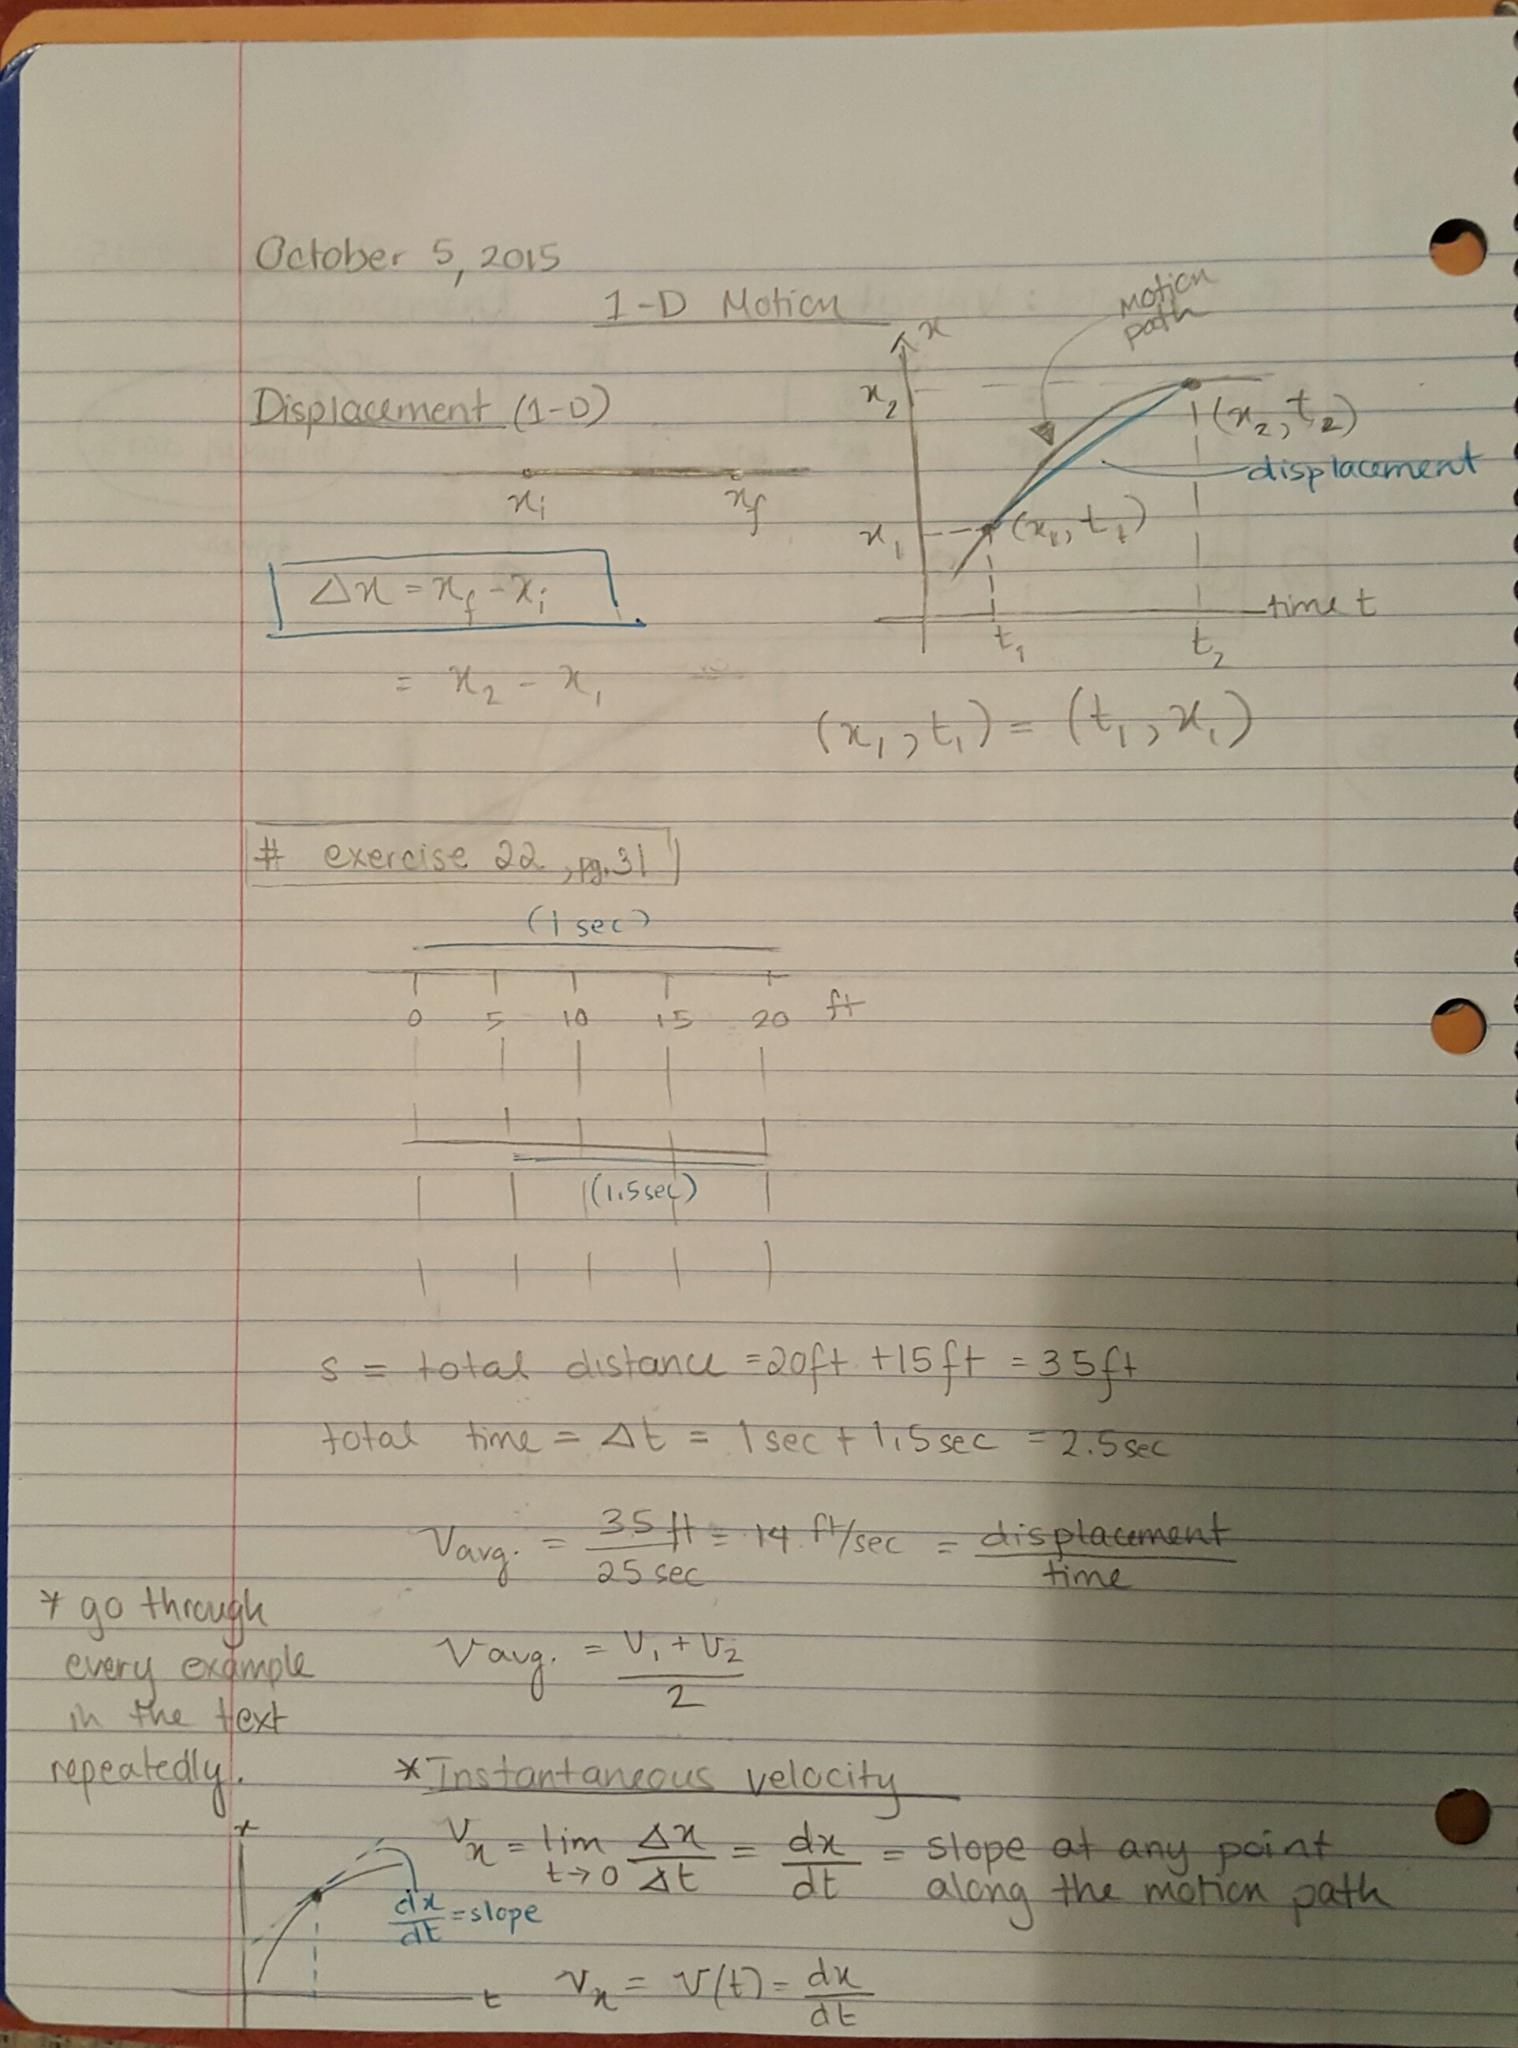 October 5, 2015
1-D Motion
Motion
path
x
x₂
Displacement (1-D)
(x₂, t₂)
displacement
xᵢ
x_f
x₁
(x₁, t₁)
Δx = x_f - xᵢ
time t
t₁
t₂
= x₂ - x₁
(x₁, t₁) = (t₁, x₁)
# exercise 22, pg.31
(1 sec)
0 5 10 15 20 ft
(1.5sec)
s = total distance = 20ft + 15ft = 35ft
total time = Δt = 1sec + 1.5sec = 2.5sec
Vavg. = 35 ft / 25 sec = 14 ft/sec = displacement / time
* go through
every example
in the text
repeatedly.
Vavg. = V₁ + V₂ / 2
* Instantaneous velocity
Vₓ = lim t→0 Δx / Δt = dx / dt = slope at any point
along the motion path
x
dx / dt = slope
t
Vₓ = V(t) = dx / dt